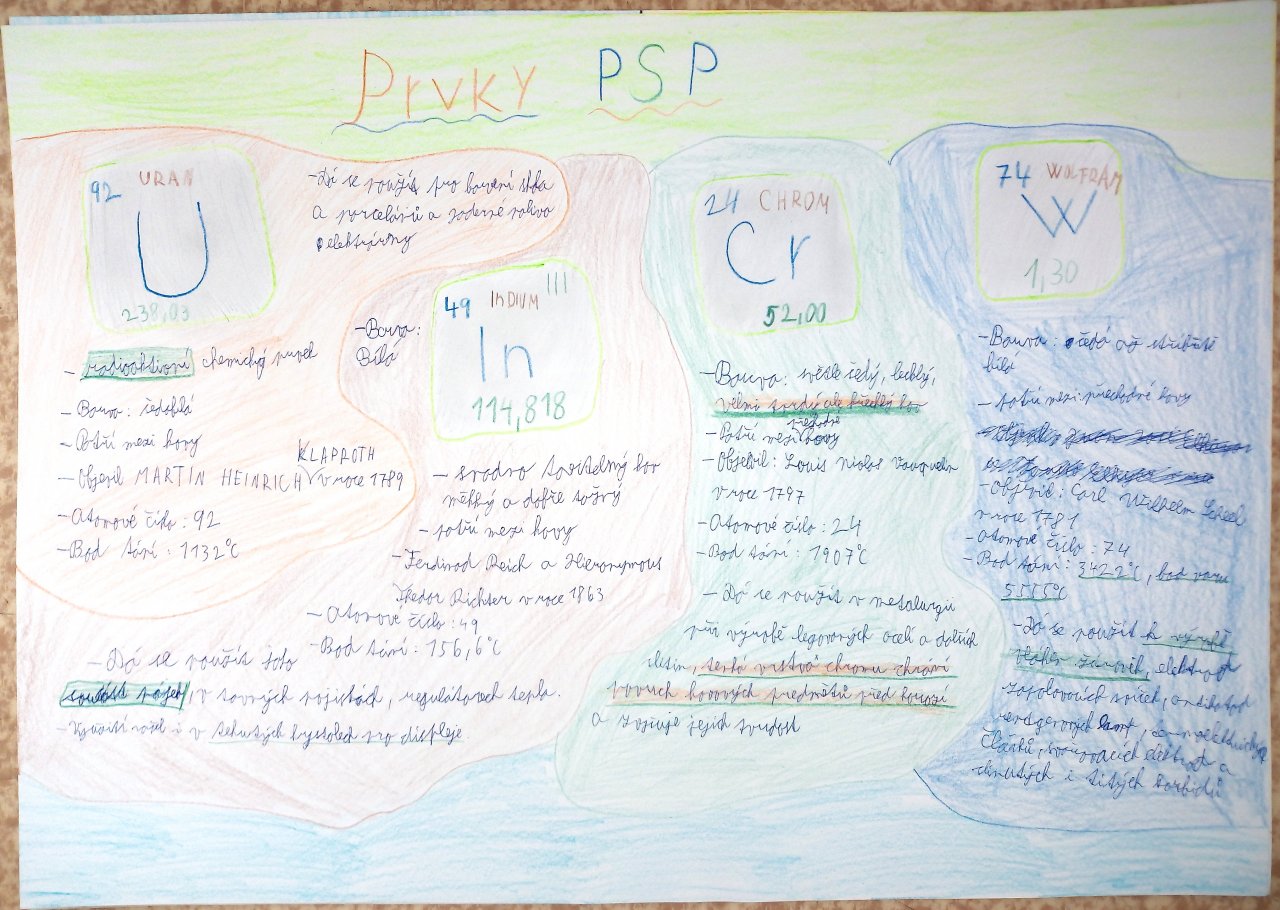 Prvky PSP
92 URAN
U
238,03
- Dá se použít pro barvení skla
a porcelánů a jaderné palivo
elektrárny
- radioaktivní chemický prvek
- Barva: šedobílá
- Patří mezi kovy
- Objevil MARTIN HEINRICH KLAPROTH v roce 1789
- Atomové číslo: 92
- Bod tání: 1132°C
49 InDIUM III
In
114,818
- Barva:
Bílá
- snadno tavitelný kov
měkký a dobře tažný
- patří mezi kovy
- Ferdinad Reich a Hieronymous
Theodor Richter v roce 1863
- Atomové číslo: 49
- Bod tání: 156,6°C
- Dá se použít jako
součást pájek, v tavných pojistkách, regulátorech tepla.
- Využití našel i v tekutých krystalech pro displeje.
24 CHROM
Cr
52,00
- Barva: světle šedý, lesklý,
velmi tvrdý ale křehký kov
- Patří mezi přechodné kovy
- Objevil: Louis Nicolas Vauquelin
v roce 1797
- Atomové číslo: 24
- Bod tání: 1907°C
- Dá se použít v metalurgii
při výrobě legovaných ocelí a dalších
slitin, tenká vrstva chromu chrání
povrch kovových předmětů před korozí
a zvyšuje jejich tvrdost
74 WOLFRAM
W
1,30
- Barva: šedá až stříbřitě
bílá
- patří mezi přechodné kovy
- Objevič: Carl Wilhelm Scheele
v roce 1781
- atomové číslo: 74
- Bod tání: 3422°C, bod varu
5555°C
- Dá se použít k výrobě
vláken žárovek, elektrod
zapalovacích svíček, antikatod
rentgenových lamp,
článků, svařovacích elektrod a
slinutých i litých karbidů